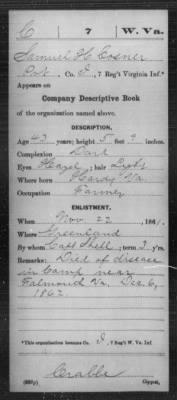 C 7 W. Va.
Samuel H Cosner
Pvt., Co. I, 7 Reg't Virginia Inf.*
Appears on
Company Descriptive Book
of the organization named above.
DESCRIPTION.
Age 43 years; height 5 feet 9 inches.
Complexion Dark
Eyes Hazel; hair Light
Where born Hardy Va.
Occupation Farmer
ENLISTMENT.
When Nov. 22, 1861.
Where Greenland
By whom Capt Shell; term 3 y'rs.
Remarks: Died of disease
in Camp near
Falmouth Va. Dec. 6,
1862.
*This organization became Co. I, 7 Reg't W. Va. Inf.
Crabbe
Copyist.